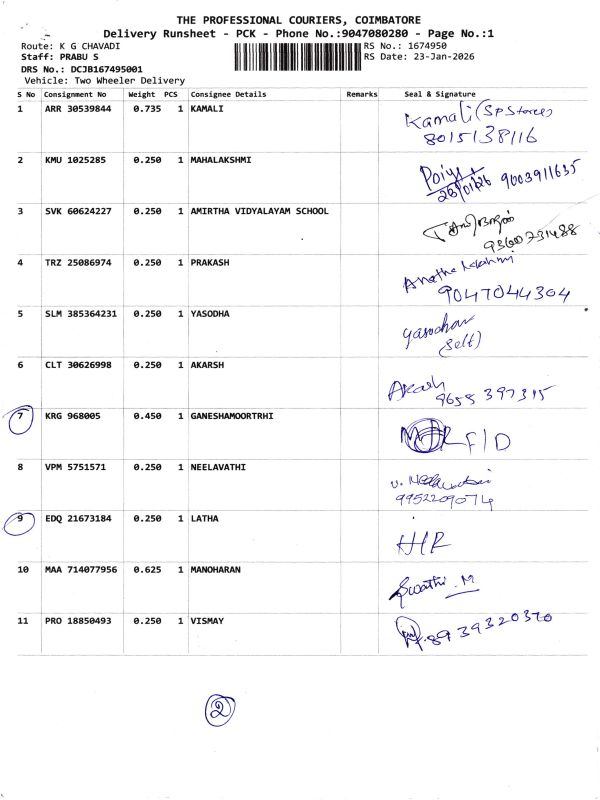 THE PROFESSIONAL COURIERS, COIMBATORE
Delivery Runsheet - PCK - Phone No.:9047080280 - Page No.:1
Route: K G CHAVADI RS No.: 1674950
Staff: PRABU S RS Date: 23-Jan-2026
DRS No.: DCJB167495001
Vehicle: Two Wheeler Delivery
S No Consignment No Weight PCS Consignee Details Remarks Seal & Signature
1 ARR 30539844 0.735 1 KAMALI Kamali (SP Stores)
8015138116
2 KMU 1025285 0.250 1 MAHALAKSHMI
23/01/26 9003911635
3 SVK 60624227 0.250 1 AMIRTHA VIDYALAYAM SCHOOL
9360731488
4 TRZ 25086974 0.250 1 PRAKASH
9047044304
5 SLM 385364231 0.250 1 YASODHA Yasodha
(Self)
6 CLT 30626998 0.250 1 AKARSH Akash
9658 397315
7 KRG 968005 0.450 1 GANESHAMOORTRHI F/D
8 VPM 5751571 0.250 1 NEELAVATHI
9952209074
9 EDQ 21673184 0.250 1 LATHA
10 MAA 714077956 0.625 1 MANOHARAN Swathi. M
11 PRO 18850493 0.250 1 VISMAY 8939320370
2